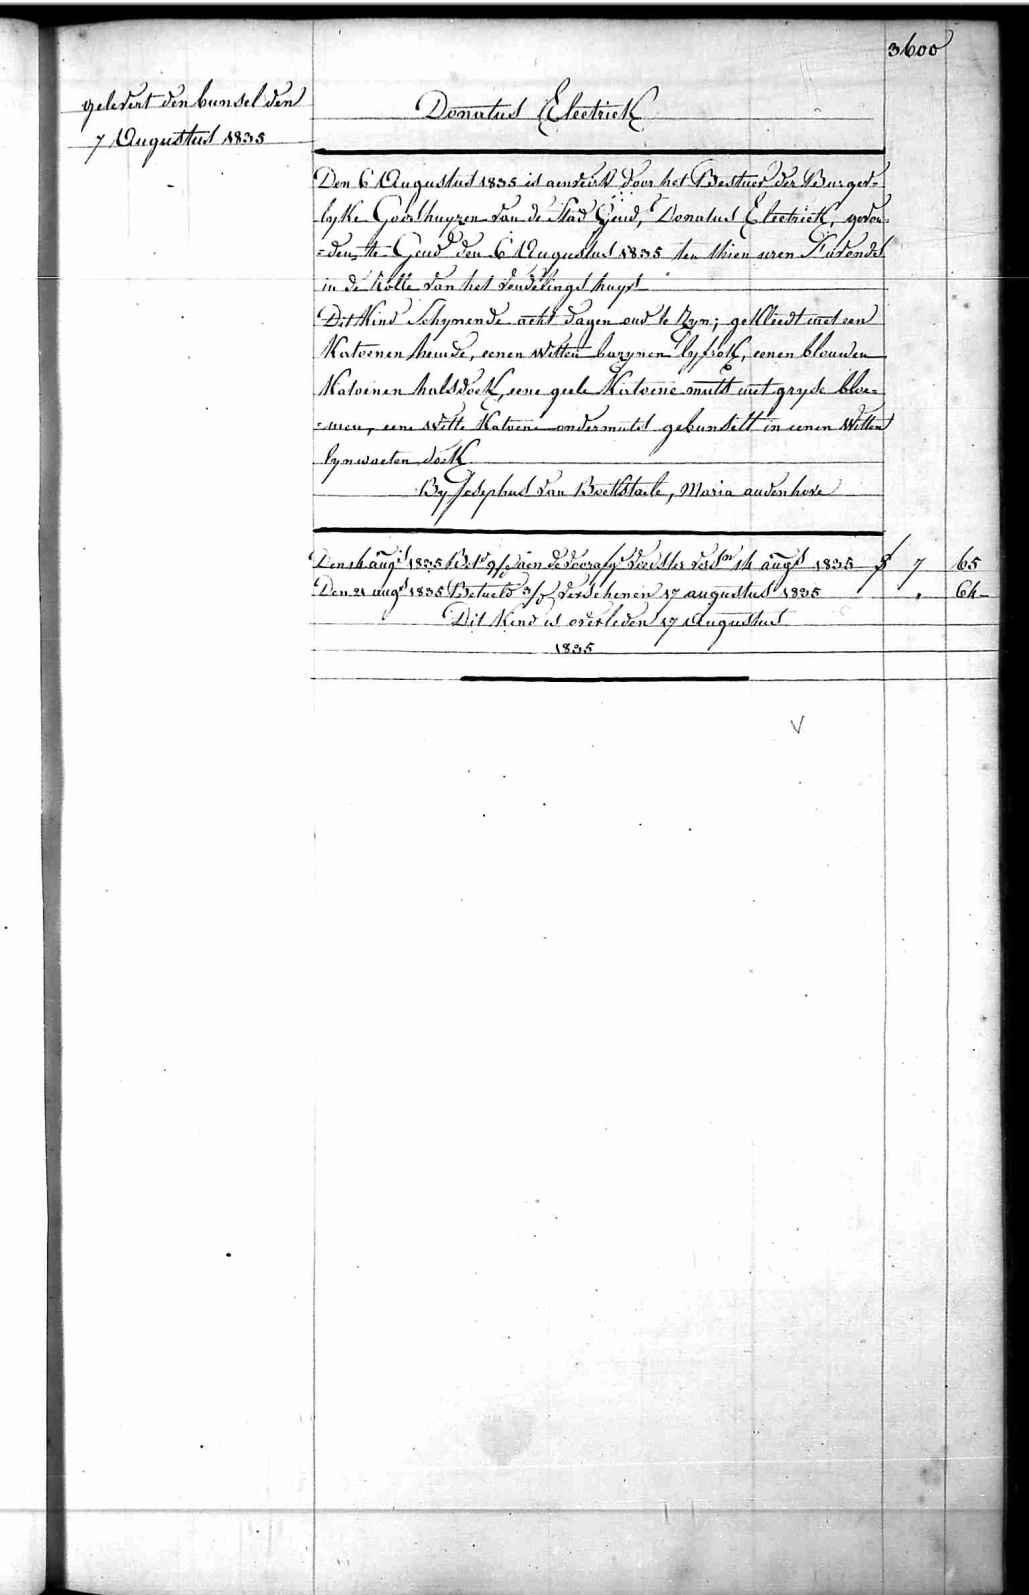 3600
gelevert den bunsel den
7 Augustus 1835
Donatus Electrick
Den 6 Augustus 1835 is aenveirt door het Bestuer der Burger-
lyke Godshuyzen van de Stad Gend, Donatus Electrick, gevon-
=den te Gend den 6 Augustus 1835 ten thien uren s'avonds
in de Rolle van het vondelings huys
Dit Kind schynende acht dagen oud te zyn; gekleedt met een
Katoenen hemde, eenen witten bazynen lyfrok, eenen blauwen
Katoenen halsdoek, eene geele Katoene muts met gryse bloe=
=men, eene witte Katoene ondermuts gebunselt in eenen witten
lynwaeten doek
By Josephus van Bockstaele, Maria audenhove
Den 14 augs 1835 Bet. aen de voorsz. voedster versn 14 augs 1835 7 65
Den 21 augs 1835 Betaelt 3/ verschenen 17 augustus 1835 " 64
Dit Kind is overleden 17 Augustus
1835
V